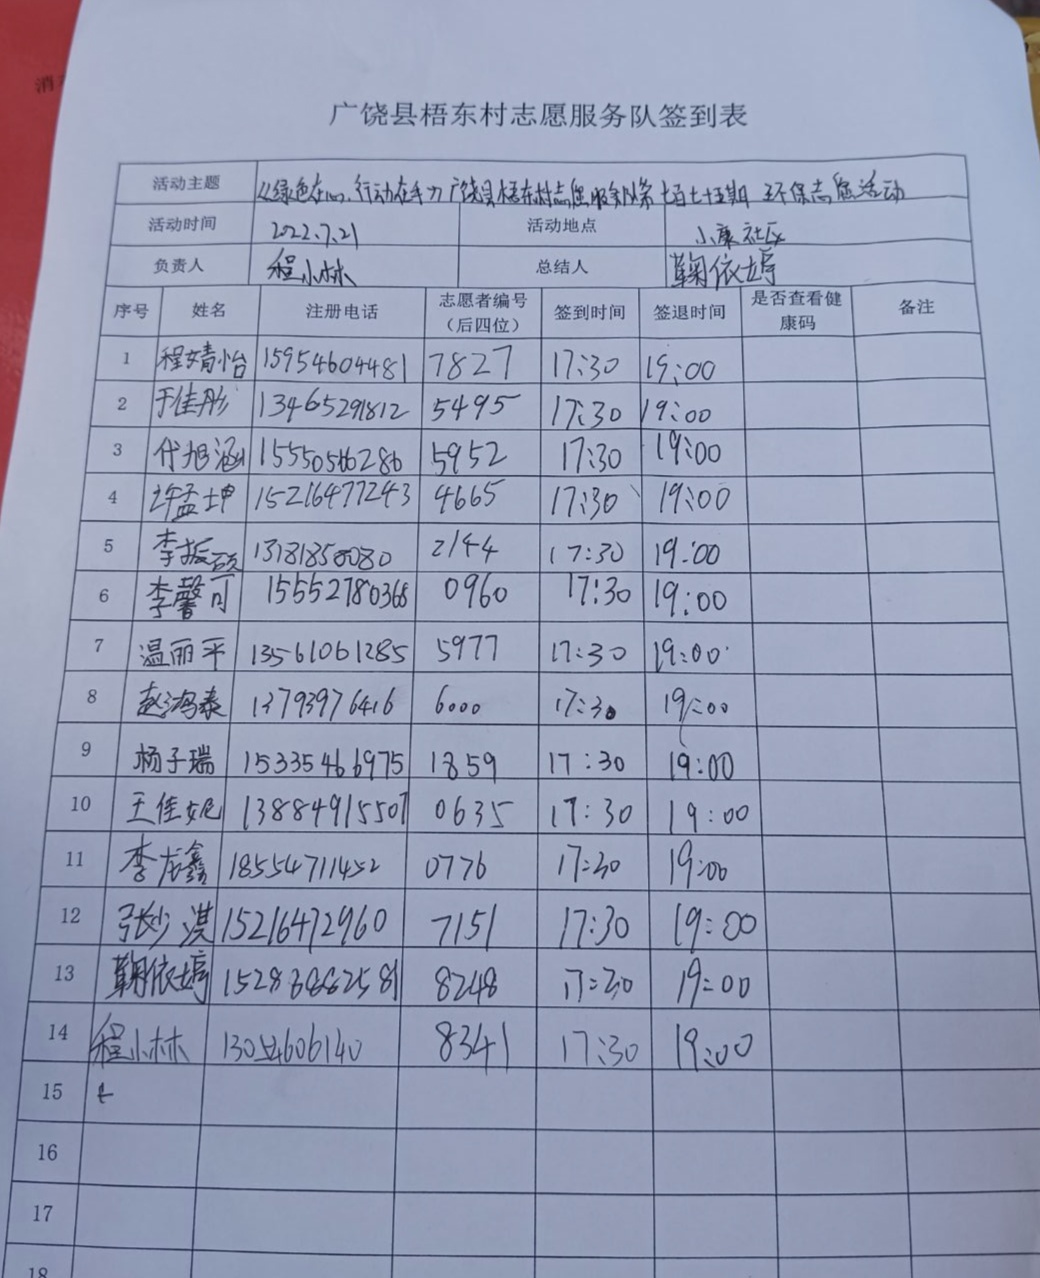 消
广饶县梧东村志愿服务队签到表
活动主题 《绿色在心,行动在手》广饶县梧东村志愿服务队第七百七十五期 环保志愿活动
活动时间 2022.7.21 活动地点 小康社区
负责人 程小林 总结人 鞠依婷
序号 姓名 注册电话 志愿者编号（后四位） 签到时间 签退时间 是否查看健康码 备注
1 程婧怡 15954604481 7827 17:30 19:00
2 于佳彤 13465291812 5495 17:30 19:00
3 代旭涵 15550546286 5952 17:30 19:00
4 许孟坤 15216477243 4665 17:30 19:00
5 李振硕 13181858080 2144 17:30 19:00
6 李馨可 15552780368 0960 17:30 19:00
7 温丽平 13561061285 5977 17:30 19:00
8 赵鸿泰 13793976416 6000 17:30 19:00
9 杨子瑞 15335466975 1859 17:30 19:00
10 王佳妮 13884915507 0635 17:30 19:00
11 李龙鑫 18554711452 0776 17:30 19:00
12 张少淇 15216472960 7151 17:30 19:00
13 鞠依婷 8248 17:30 19:00
14 程小林 13054606140 8341 17:30 19:00
15
16
17
18